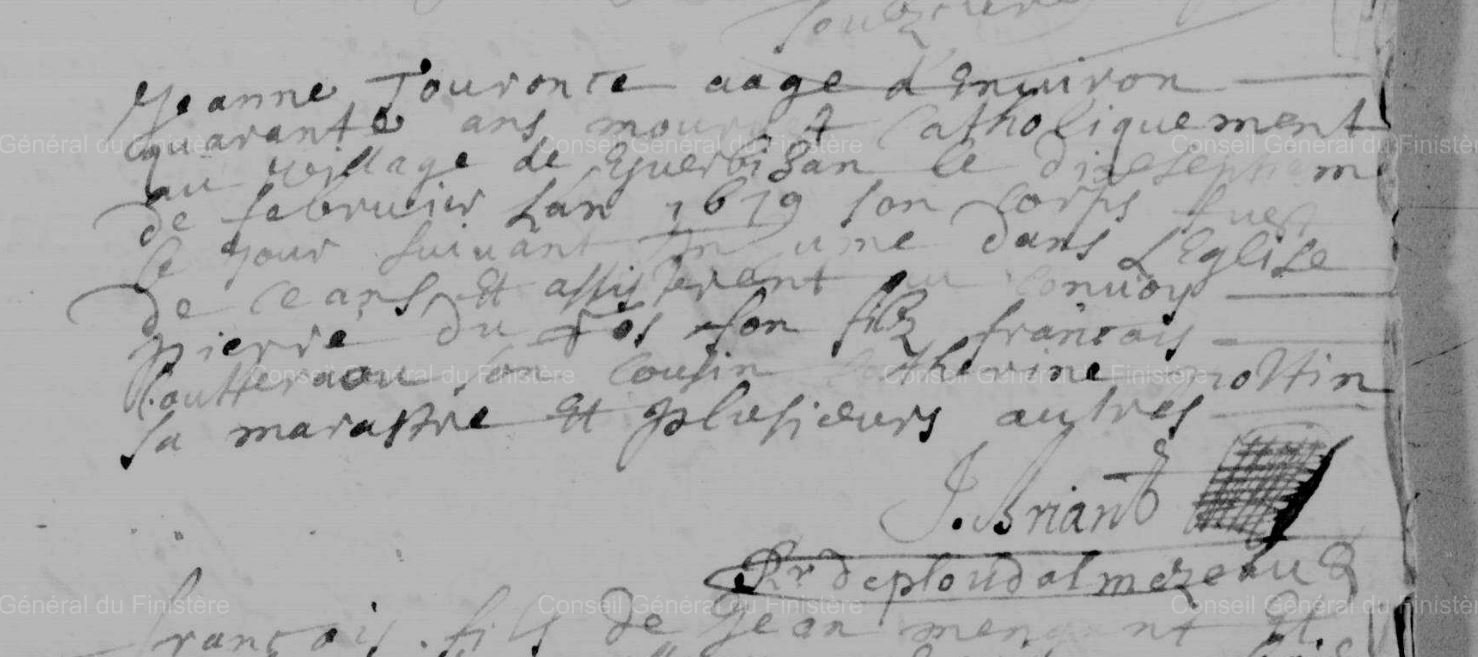 Jeanne Touronce aage d'Enuiron
quarante ans mourut Catholiquement
au village de Guerbizan le dixseptiem
de februier Lan 1679 son corps fust
le jour suivant Inhume dans LEglise
de ceans, Et assisterent au Convoy
pierre du fos son filz francois
son cousin Catherine
sa marastre Et plusieurs autres
J. Briant
Rr de ploudalmezeau
francois fils de Jean Et
Conseil Général du Finistère